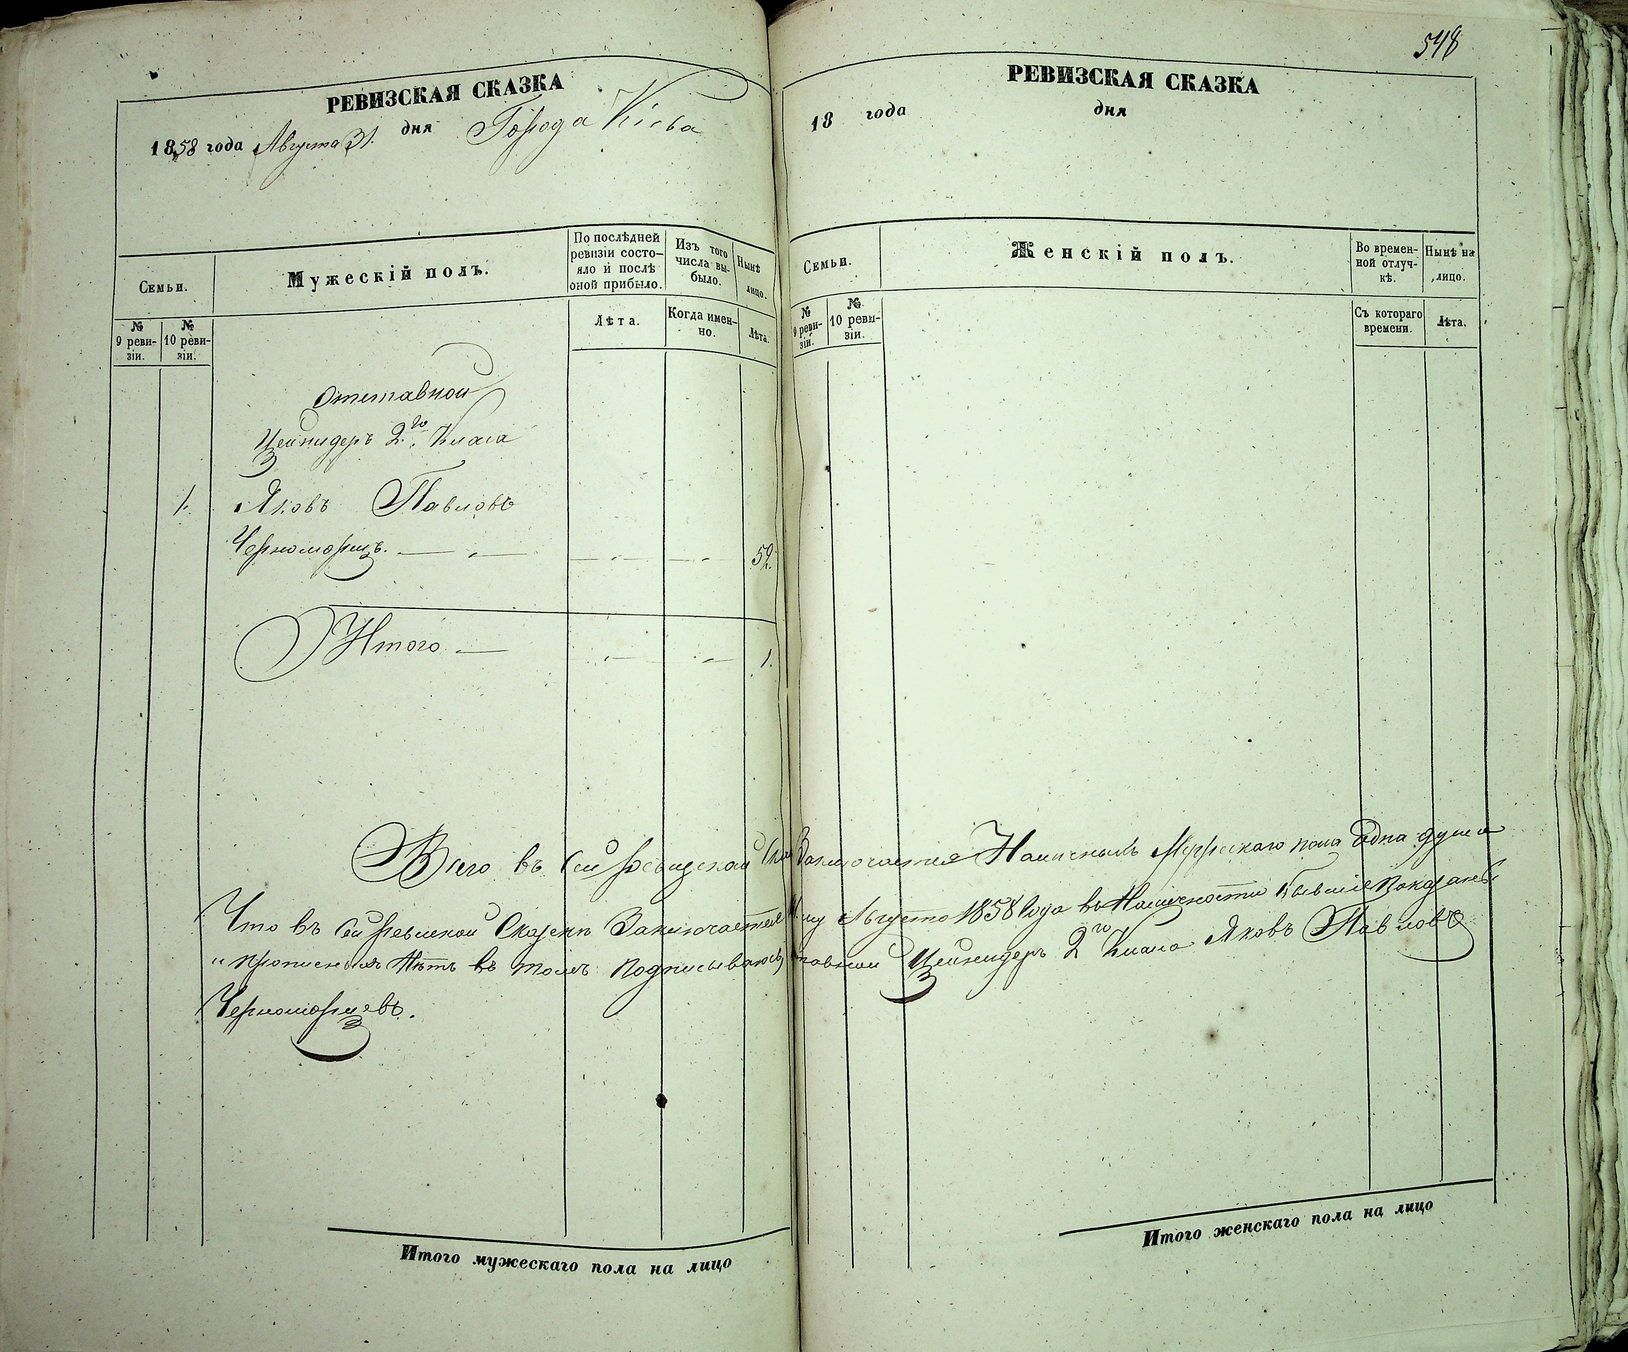 548
РЕВИЗСКАЯ СКАЗКА
1858 года Августа 31. дня Города Кіева
Семьи.
Мужескій полъ.
По послѣдней ревизіи состояло и послѣ оной прибыло.
Изъ того числа выбыло.
Нынѣ лицо.
№ 9 ревизіи.
№ 10 ревизіи.
Лѣта.
Когда именно.
Лѣта.
Отставной
Цейхидеръ 2го Класа
1. Яковъ Павловъ
Черноморецъ. 52.
Итого 1.
РЕВИЗСКАЯ СКАЗКА
18 года дня
Семьи.
Женскій полъ.
Во временной отлучкѣ.
Нынѣ на лицо.
№ 9 ревизіи.
№ 10 ревизіи.
Съ котораго времени.
Лѣта.
Всего въ Сей Заключается Наличныхъ Мужескаго пола Одна душа
Что въ сей Ревиской Скаскѣ Заключается му Августо 1858 Года въ Наличности бывшіе Показаны
и прописныхъ Нѣтъ въ томъ подписываюсь тавной 2го Класа Яковъ Павловъ
Черноморцевъ.
Итого мужескаго пола на лицо
Итого женскаго пола на лицо